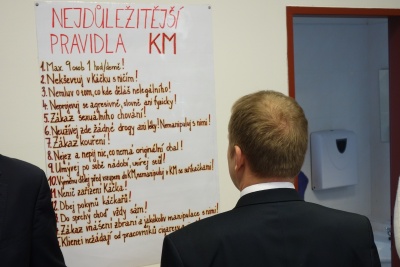 NEJDŮLEŽITĚJŠÍ
PRAVIDLA KM
1. Max. 9 osob 1 hod/denně!
2. Nekšeftuj v Káčku s ničím!
3. Nemluv o tom, co kde děláš nelegálního!
4. Neprojevuj se agresivně, slovně ani fyzicky!
5. Zákaz sexuálního chování!
6. Neužívej zde žádné drogy ani léky! Nemanipuluj s nimi!
7. Zákaz kouření!
8. Nejez a nepij nic, co nemá originální obal!
9. Umývej po sobě nádobí, uvěrej stůl!
10. Výměnu dělej před vstupem do KM, nemanipuluj v KM se stříkačkami!
11. Nenič zařízení Káčka!
12. Dbej pokynů káčkařů!
13. Do sprchy choď vždy sám!
14. Zákaz vnášení zbraní a jakákoliv manipulace s nimi!
15. Klienti nežádají od pracovníků cigarety